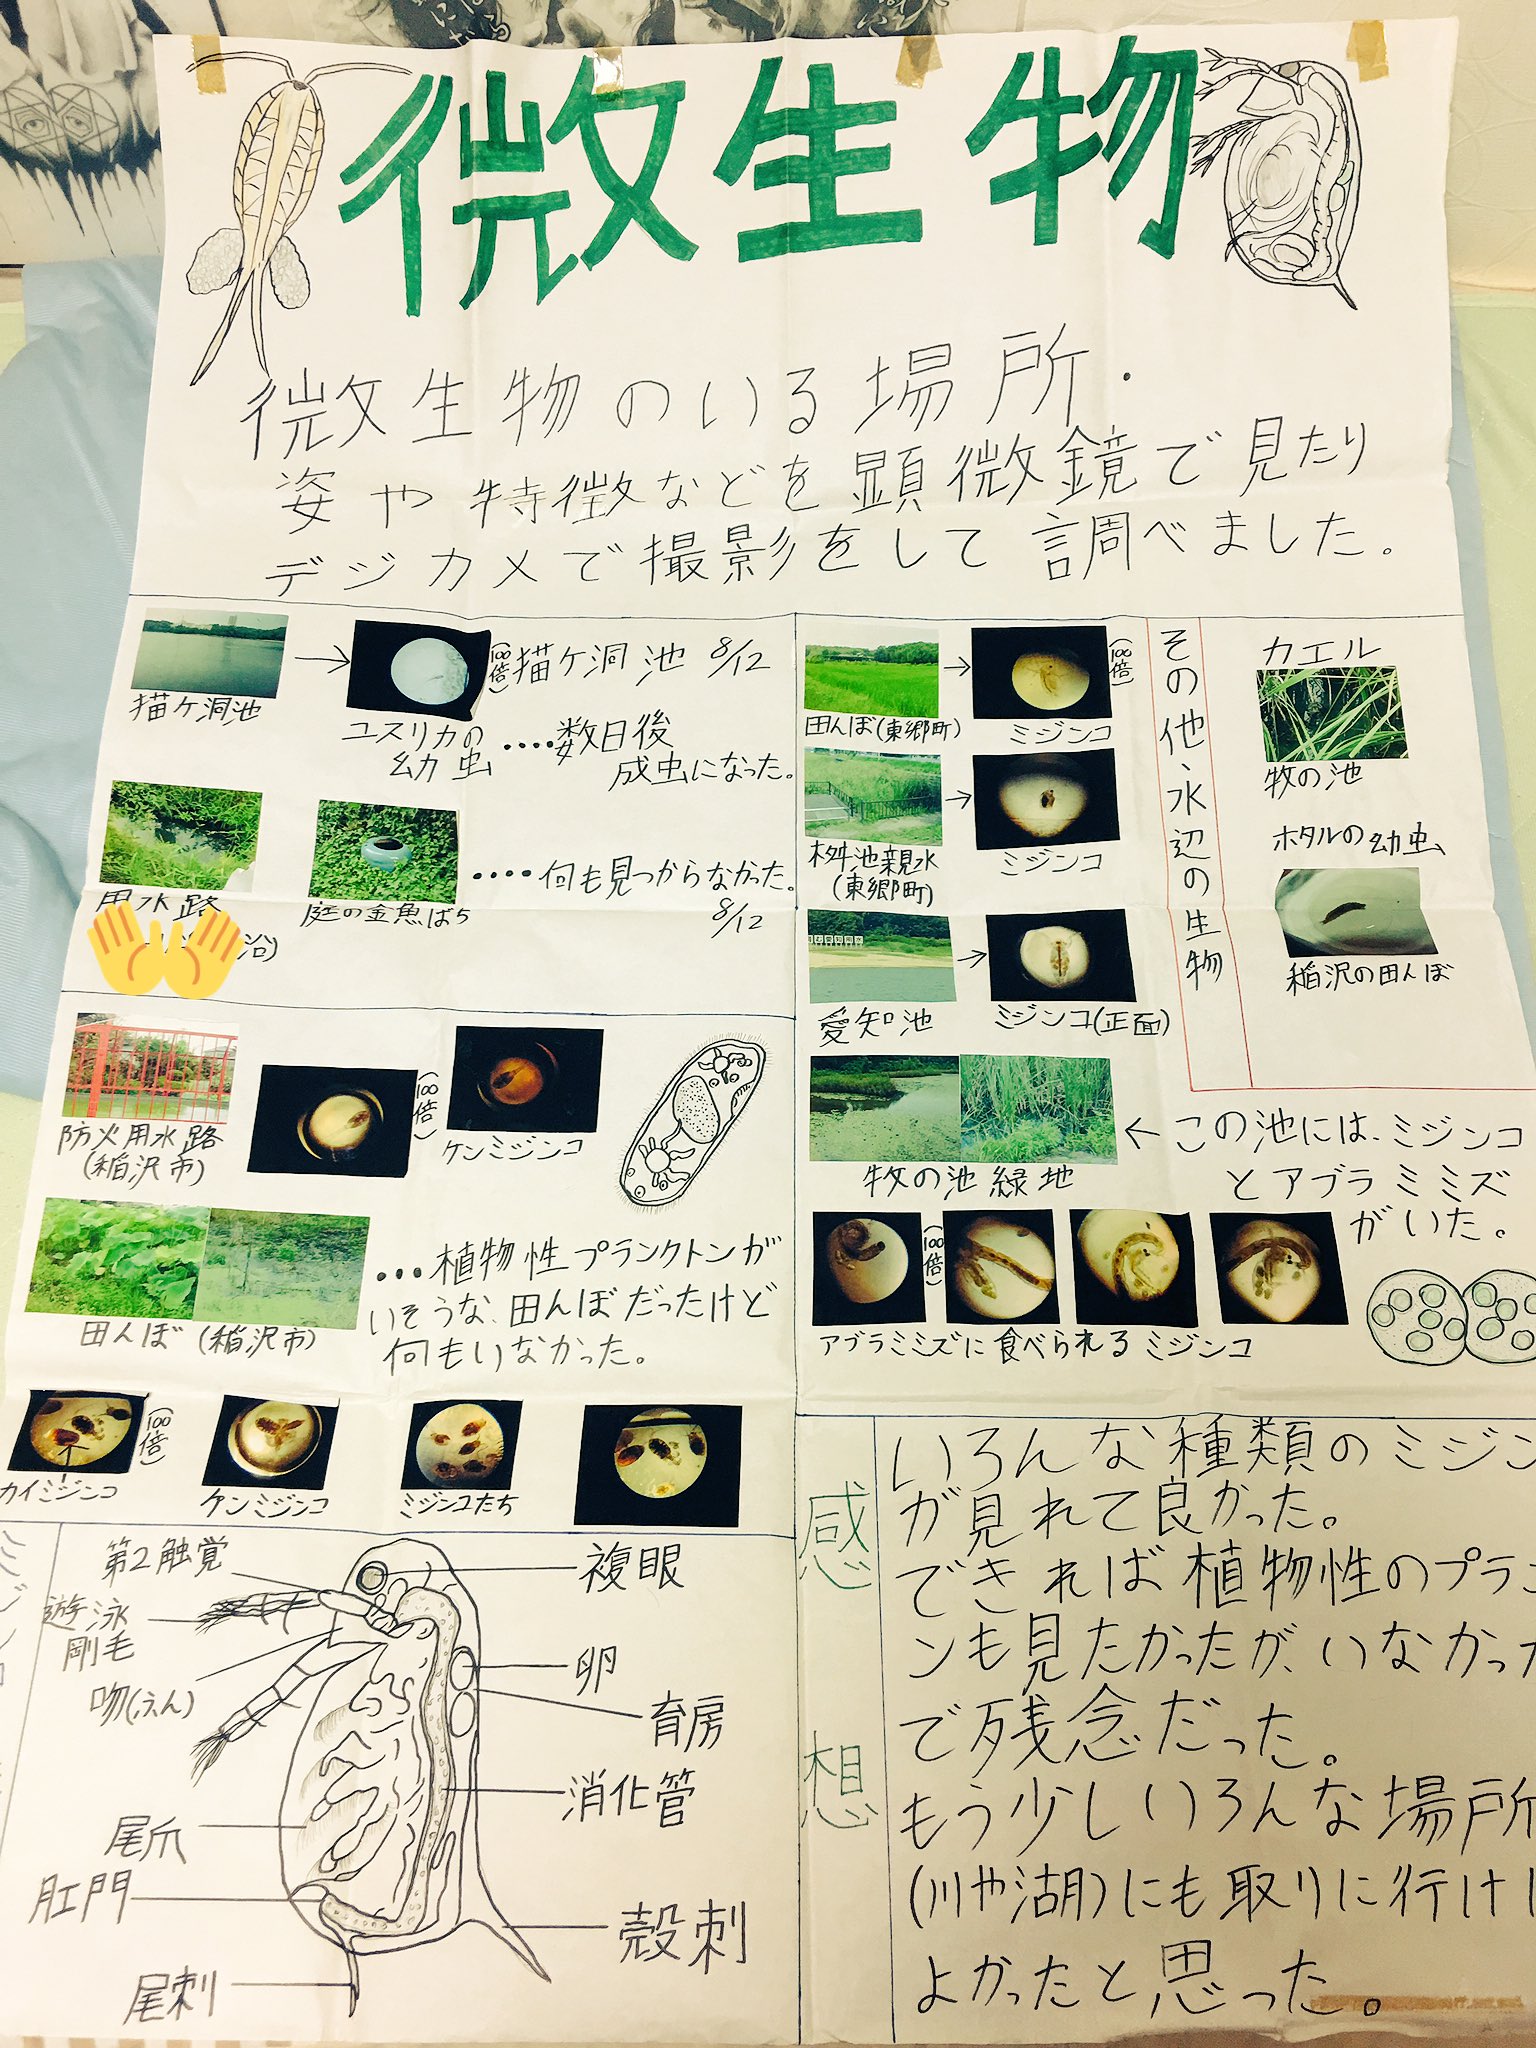 微生物
微生物のいる場所・
姿や特徴などを顕微鏡で見たり
デジカメで撮影をして調べました。
猫ケ洞池
(100倍)
猫ケ洞池 8/12
ユスリカの
幼虫
‥‥数日後
成虫になった。
用水路
沿)
庭の金魚ばち
‥‥何も見つからなかった。
8/12
防火用水路
(稲沢市)
(100倍)
ケンミジンコ
田んぼ(稲沢市)
…植物性プランクトンが
いそうな、田んぼだったけど
何もいなかった。
カイミジンコ
(100倍)
ケンミジンコ
ミジンコたち
田んぼ(東郷町)
(100倍)
ミジンコ
桝池親水
(東郷町)
ミジンコ
愛知池
ミジンコ(正面)
牧の池緑地
←この池には、ミジンコ
とアブラミミズ
がいた。
(100倍)
アブラミミズに食べられるミジンコ
その他、水辺の生物
カエル
牧の池
ホタルの幼虫
稲沢の田んぼ
第2触覚
遊泳
剛毛
吻(ふん)
尾爪
肛門
尾刺
複眼
卵
育房
消化管
殻刺
感想
いろんな種類のミジン
が見れて良かった。
できれば植物性のプラン
ンも見たかったが、いなかった
で残念だった。
もう少しいろんな場所
(川や湖)にも取りに行けば
よかったと思った。